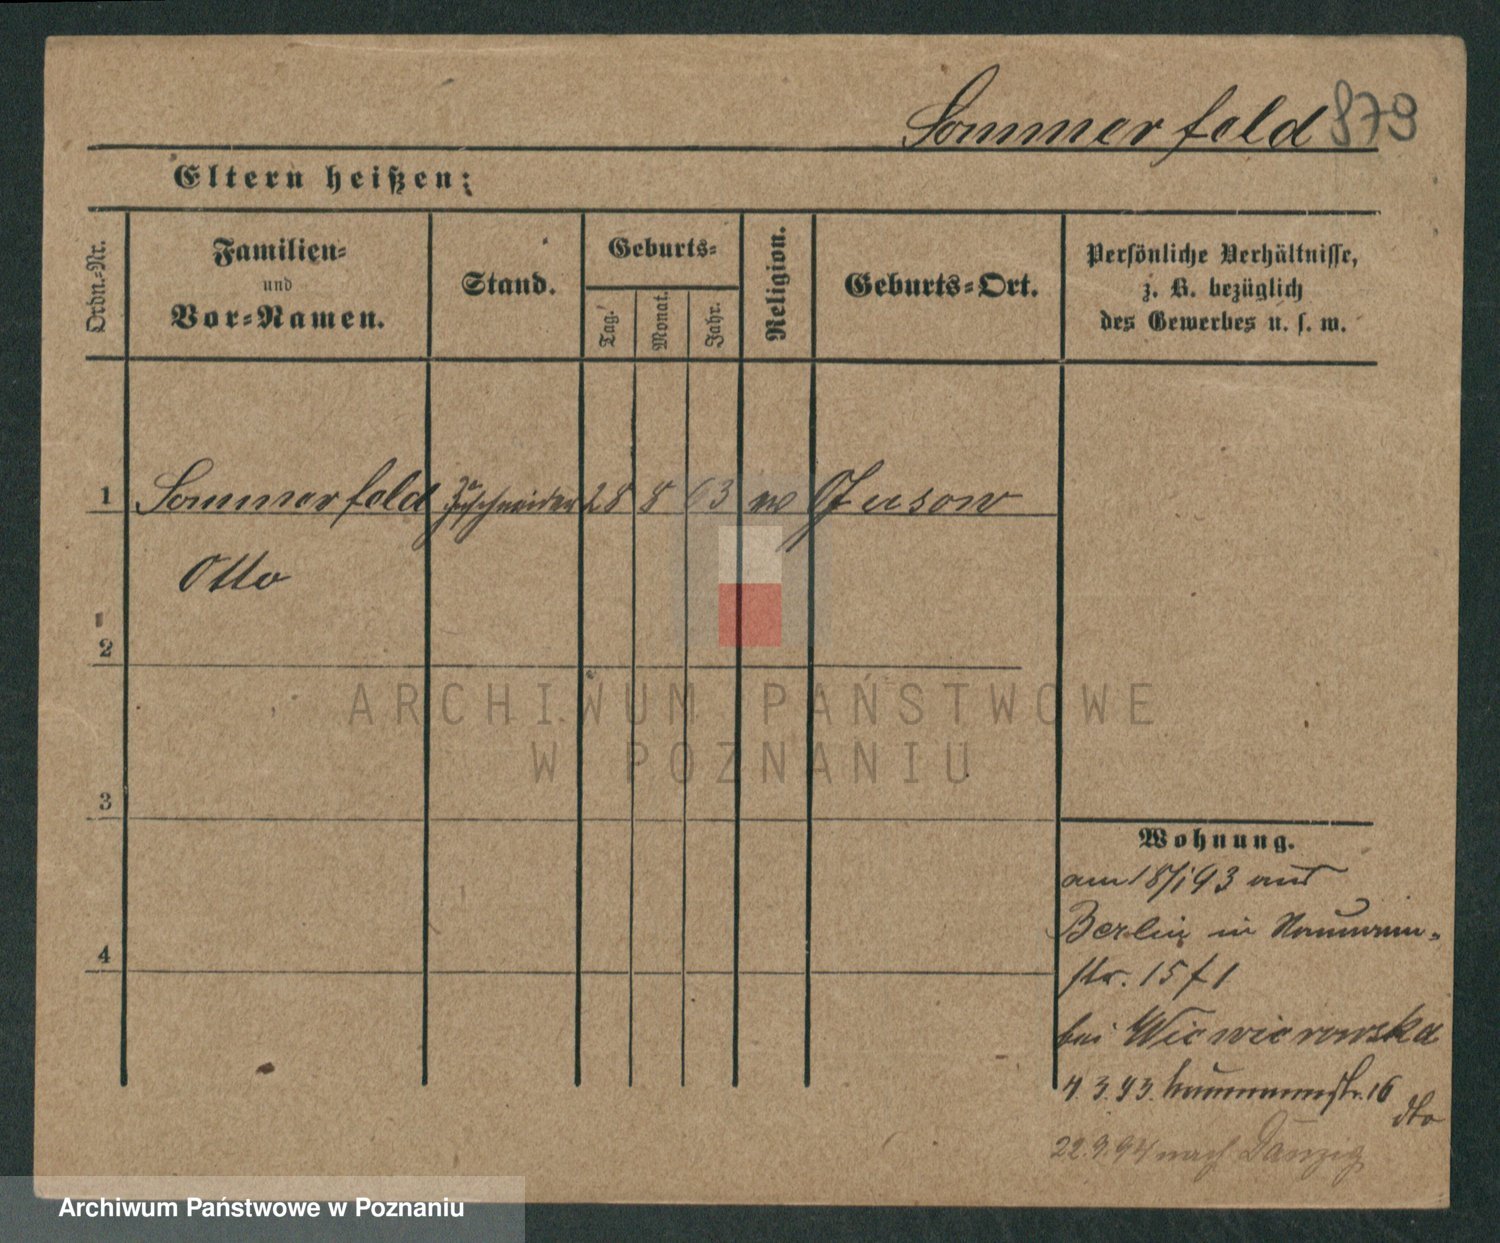 Sommerfeld 879
Eltern heißen:
Ordn.-Nr.
Familien-
und
Vor-Namen.
Stand.
Geburts-
Tag.
Monat.
Jahr.
Religion.
Geburts-Ort.
Persönliche Verhältnisse,
z. B. bezüglich
des Gewerbes u. s. w.
1 Sommerfeld Zuschneider 28 8 63 Jusow
Otto
2
3
4
Wohnung.
am 18/1 93 aus
Berlin in Naumann-
str. 15 f 1
bei Wiewiorowska
4.3.93. Naumannstr. 16
dto
22.9.94 nach Danzig
ARCHIWUM PAŃSTWOWE
W POZNANIU
Archiwum Państwowe w Poznaniu